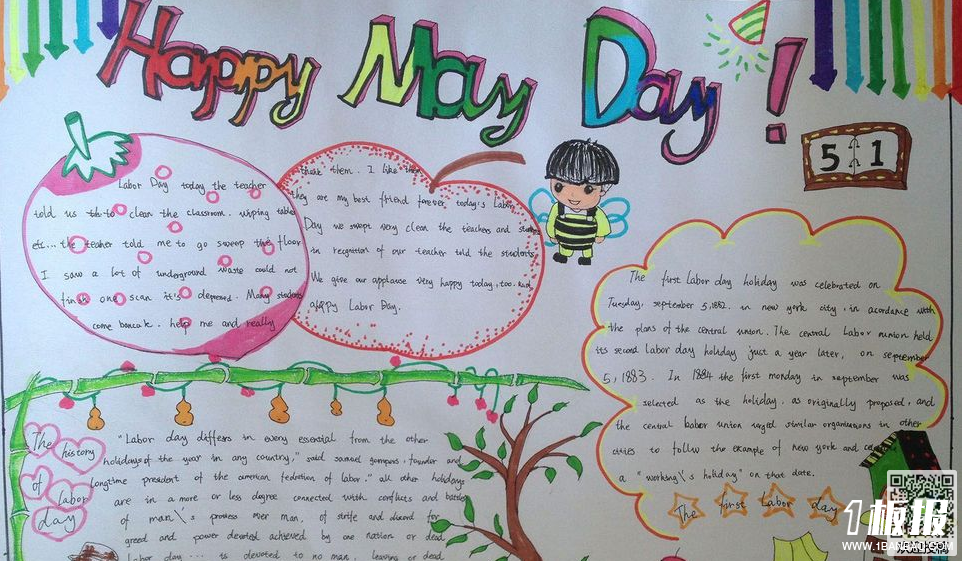 Happy May Day!
5 1
Labor Day today the teacher
told us to clean the classroom. wiping tables
etc... the teacher told me to go sweep the floor
I saw a lot of underground waste could not
finish one scan it's depressed. Many students
come back. help me and really
thank them. I like them
they are my best friend forever today's Labor
Day we swept very clean the teachers and students
in recognition of our teacher told the students
We give our applause very happy today, too. and
Happy Labor Day.
The first labor day holiday was celebrated on
Tuesday, september 5,1882. in new york city, in acordance with
the plans of the central union. The central Labor nunion held
its second labor day holiday just a year later, on september
5,1883. In 1884 the first monday in september was
selected as the holiday, as originally proposed, and
the central bober union urged similar organisations in other
cities to follow the example of new york and
a "working\'s holiday" on that date.
The first labor day
The history
of labor
day
"Labor day differs in every essential from the other
holidays of the year in any country," said samuel gompers, founder and
longtime president of the american federation of labor." all other holidays
are in a more or less degree connected with conflicts and battles
of man\'s prowess over man, of strife and discord for
greed and power, achieved by one nation or dead
labor day ... is devoted to no man, leaving or dead,
1板报
WWW.1BANBAO.COM